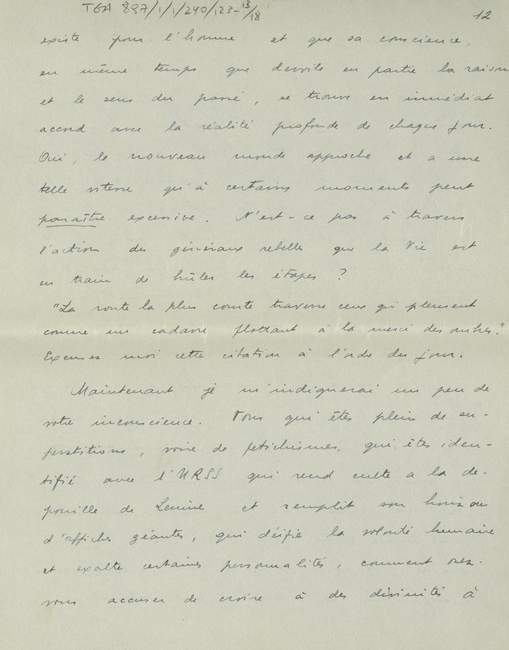 TGA 897/1/1/240/123-13/18
12
existe pour l'homme et que sa conscience,
en même temps que dévoile en partie la raison
et le sens du passé, se trouve en immédiat
accord avec la réalité profonde de chaque jour.
Oui, le nouveau monde approche et a une
telle vitesse qu'à certains moments peut
paraître excessive. N'est-ce pas à travers
l'action des généraux rebelles que la Vie est
en train de brûler les étapes ?
"La route la plus courte traverse ceux qui pleurent
comme un cadavre flottant à la merci des ondes."
Excusez moi cette citation à l'ordre du jour.
Maintenant je m'indignerai un peu de
votre inconscience. Vous qui êtes pleins de su-
perstitions, voire de fetichismes, qui êtes iden-
tifié avec l'URSS qui rend culte a la dé-
pouille de Lenine et remplit son horizon
d'affiches géantes, qui déifie la volonté humaine
et exalte certaines personnalités, comment osez-
vous accuser de croire à des divinités à